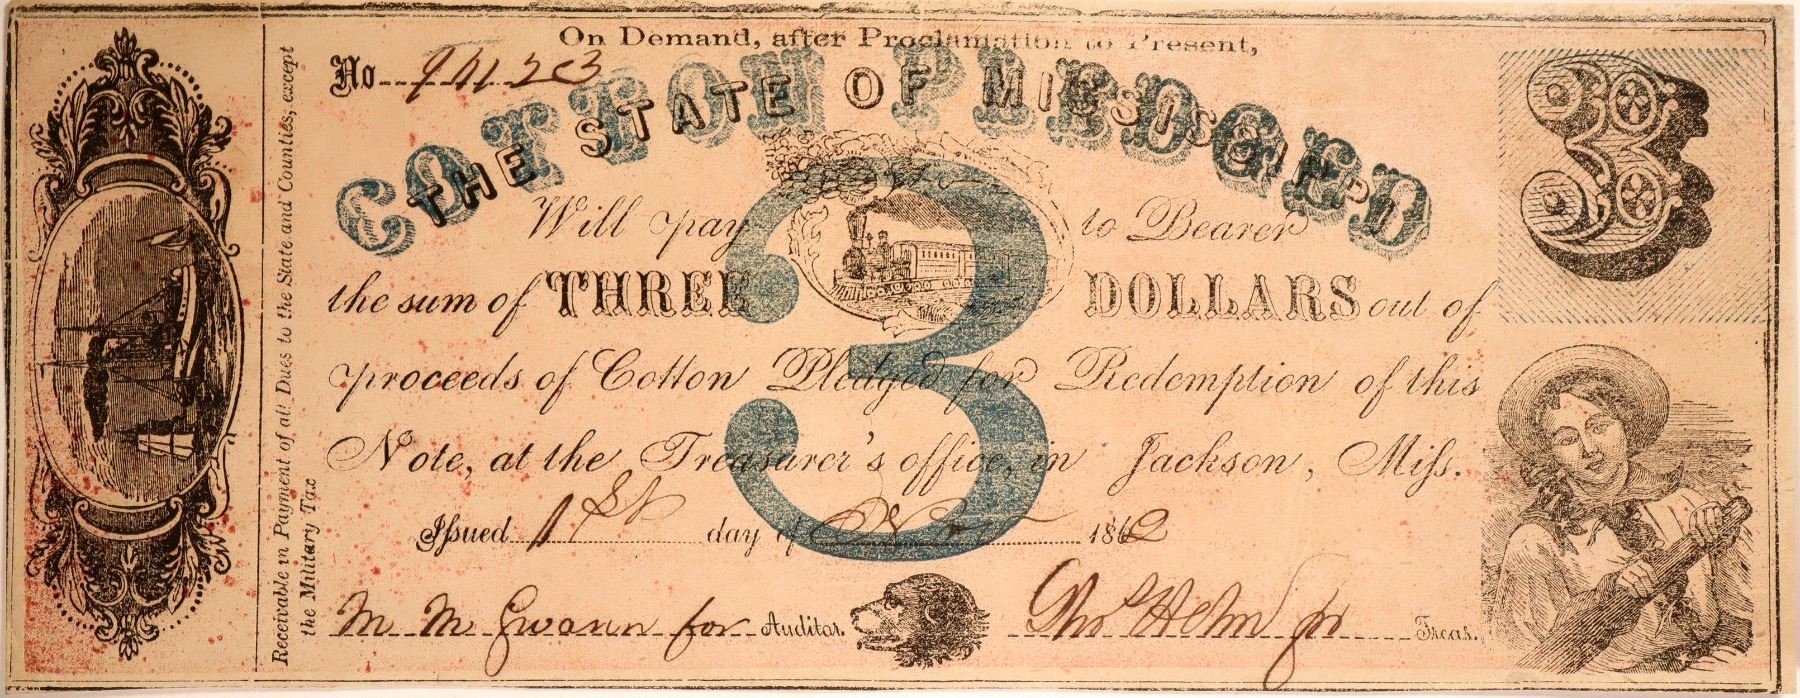 On Demand, after Proclamation to Present,
No 94123
COTTON PLEDGED
THE STATE OF MISSISSIPPI
3
Will pay to Bearer
3
the sum of THREE DOLLARS out of
proceeds of Cotton Pledged for Redemption of this
Note, at the Treasurer's office, in Jackson, Miſs.
Iſsued 1st day of Nov 1862
M M Gwann for Auditor.
Treas.
Receivable in Payment of all Dues to the State and Counties, except
the Military Tax